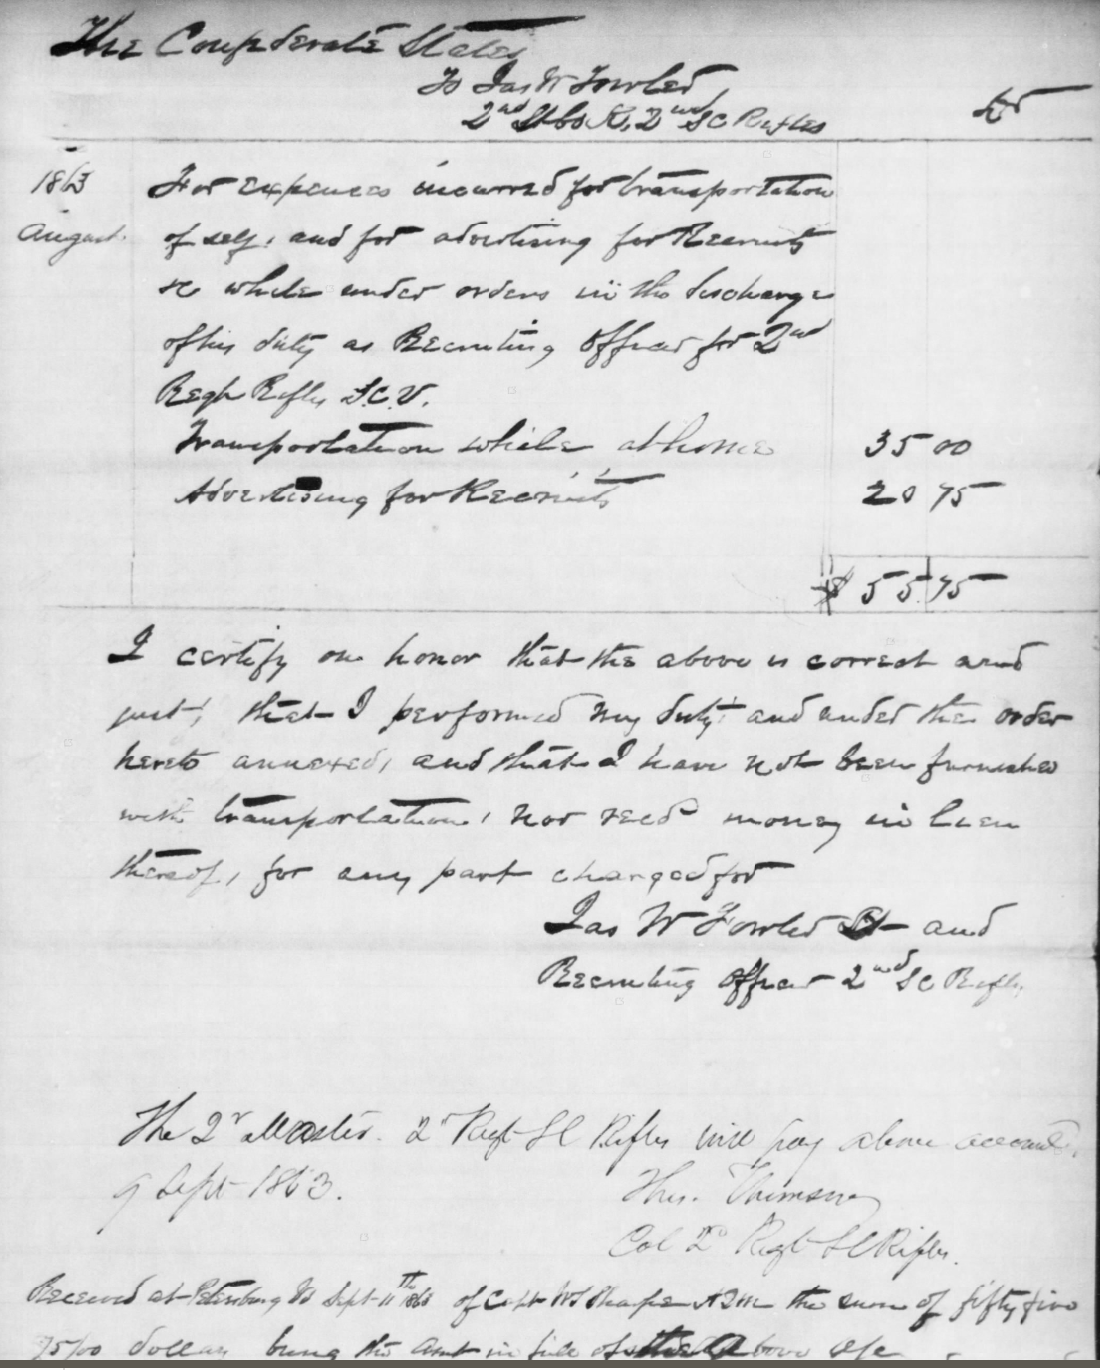 The Confederate States
To Jas W Fowler
2nd Lt Co K, 2nd SC Rifles
Dr
1863 For expences incurred for transportation
August of self, and for advertising for Recruits
&c while under orders in the discharge
of his duty as Recruiting Officer for 2nd
Regt Rifles S.C.V.
Transportation while at home 35 00
Advertising for Recruits 20 75
$ 55 75
I certify on honor that the above is correct and
just, that I performed my duty and under the order
hereto annexed, and that I have not been furnished
with transportation, nor recd money in lieu
thereof, for any part charged for
Jas W Fowler Lt and
Recruiting Officer 2nd SC Rifles
The Qr Master. 2d Regt SC Rifles will pay above account
9 Sept 1863. Thos. Thomson
Col 2d Regt SC Rifles.
Received at Petersburg Va Sept 11th 1863 of Capt Sharpe AQM the sum of fifty five
75/00 dollars being the amt in full of the above